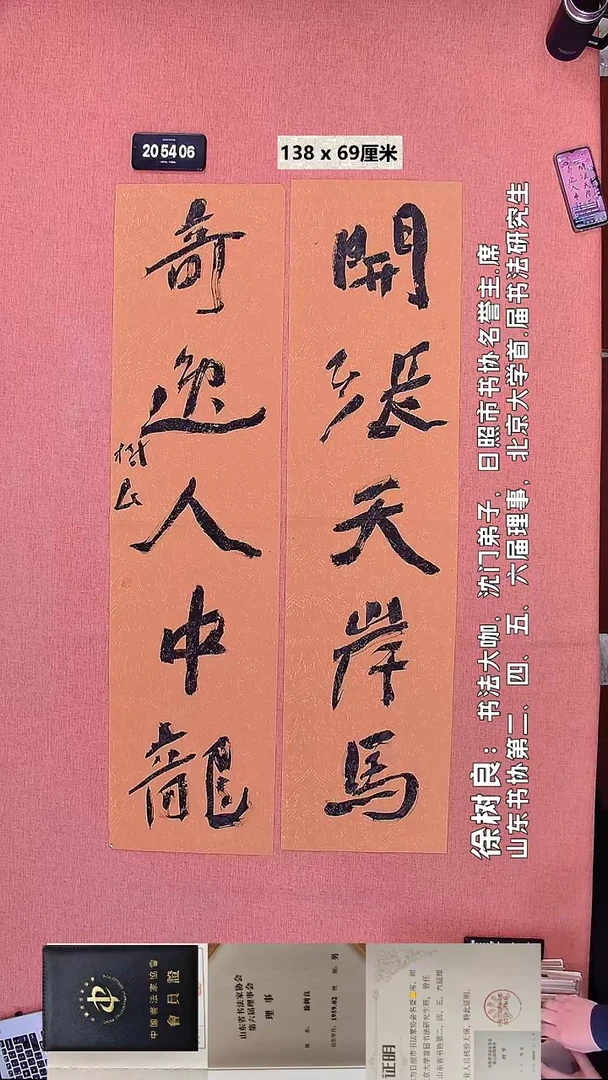 20 54 06
138 x 69厘米
開張天岸馬
奇逸人中龍
树山
徐树良：书法大咖，沈门弟子，日照市书协名誉主.席
山东书协第二、四、五、六届理事，北京大学首.届书法研究生
中国书法家协會
會員證
山东省书法家协会
第六届理事会
理 事
姓 名： 徐树良
1959.02 性 别： 男
证明